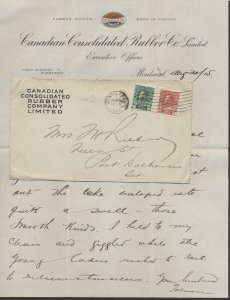 RUBBER GOODS MADE IN CANADA
Canadian Consolidated Rubber Co. Limited.
Executive Offices
Montreal, Aug 20/15
CANADIAN
CONSOLIDATED
RUBBER
COMPANY
LIMITED
Mrs
Queen St
Port Dalhousie
Ont
out the lake developed into
quite a swell - those
smooth kinds. I held to my
chair and giggled while the
young ladies rushed to rail
to relieve themselves.
Your husband